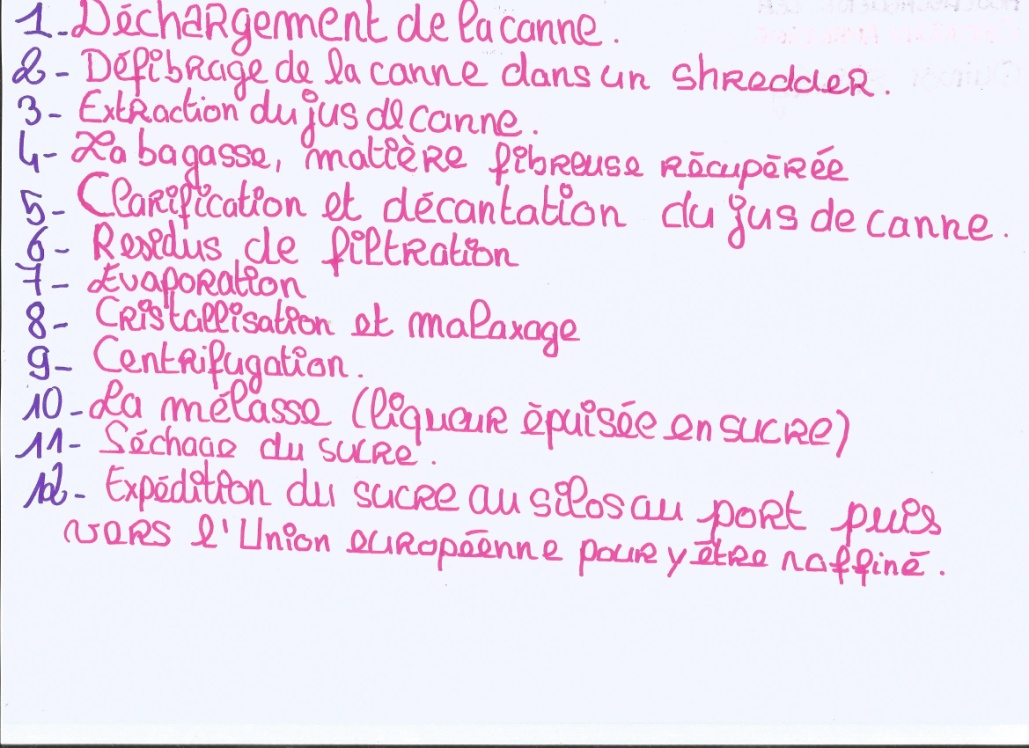 1-Déchargement de la canne.
2- Défibrage de la canne dans un shredder.
3- Extraction du jus de canne.
4- La bagasse, matière fibreuse récupérée
5- Clarification et décantation du jus de canne.
6- Residus de filtration
7- Evaporation
8- Cristallisation et malaxage
9- Centrifugation.
10-La mélasse (liqueur épuisée en sucre)
11- Séchage du sucre.
12- Expédition du sucre au silos au port puis
vers l'Union européenne pour y être raffiné.